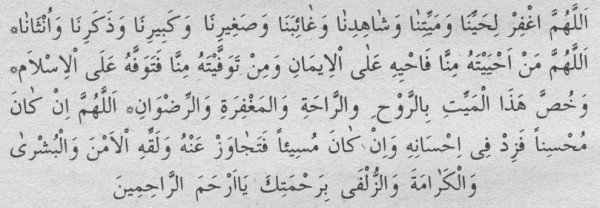 اَللّٰهُمَّ اغْفِرْ لِحَيِّنَا وَمَيِّتِنَا وَشَاهِدِنَا وَغَائِبِنَا وَصَغِيرِنَا وَكَبِيرِنَا وَذَكَرِنَا وَاُنْثَانَا*
اَللّٰهُمَّ مَنْ اَحْيَيْتَهُ مِنَّا فَاَحْيِهِ عَلَى الْاِيمَانِ وَمِنْ تَوَفَّيْتَهُ مِنَّا فَتَوَفَّهُ عَلَى الْاِسْلَامِ*
وَخُصَّ هَذَا الْمَيِّتَ بِالرَّوْحِ وَالرَّاحَةِ وَالْمَغْفِرَةِ وَالرِّضْوَانِ* اَللّٰهُمَّ اِنْ كَانَ
مُحْسِناً فَزِدْ فِى اِحْسَانِهِ وَاِنْ كَانَ مُسِيئاً فَتَجَاوَزْ عَنْهُ وَلَقِّهِ الْاَمْنَ وَالْبُشْرٰى
وَالْكَرَامَةَ وَالزُّلْفَى بِرَحْمَتِكَ يَااَرْحَمَ الرَّاحِمِينَ